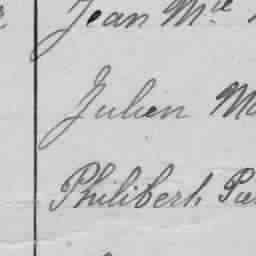 Jean Mie
Julien M
Philibert Pa